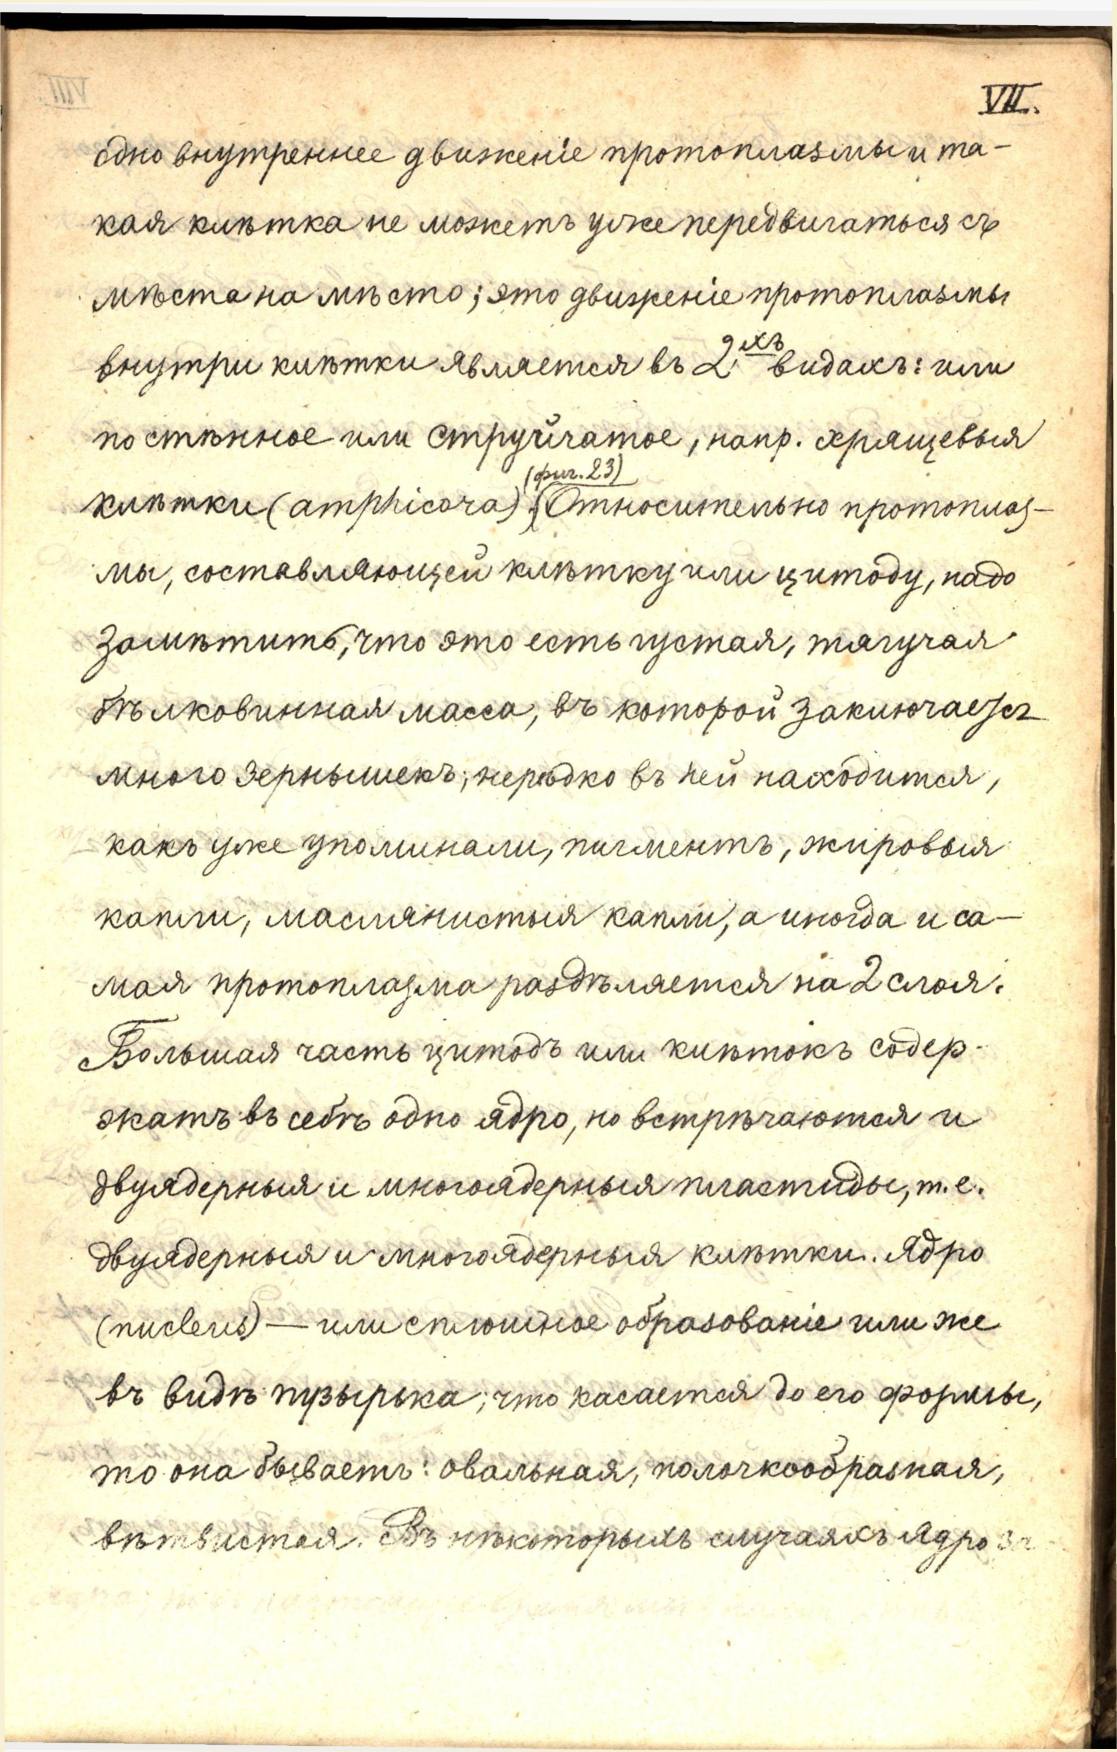 VII.
одно внутреннее движеніе протоплазмы и та-
кая клѣтка не можетъ уже передвигаться съ
мѣста на мѣсто; это движеніе протоплазмы
внутри клѣтки является въ 2хъ видахъ: или
по стѣнное или струйчатое, напр. хрящевыя
(фиг. 23)
клѣтки (amphicora). Относительно протоплаз-
мы, составляющей клѣтку или цитоду, надо
замѣтить, что это есть густая, тягучая
бѣлковинная масса, въ которой заключается
много зернышекъ; нерѣдко въ ней находится,
какъ уже упоминали, пигментъ, жировыя
капли, маслянистыя капли, а иногда и са-
мая протоплазма раздѣляется на 2 слоя.
Большая часть цитодъ или клѣтокъ содер-
жатъ въ себѣ одно ядро, но встрѣчаются и
двуядерныя и многоядерныя пластиды, т.е.
двуядерныя и многоядерныя клѣтки. Ядро
(nucleus) — или сплошное образованіе или же
въ видѣ пузырька; что касается до его формы,
то она бываетъ: овальная, палочкообразная,
вѣтвистая. Въ нѣкоторыхъ случаяхъ ядро